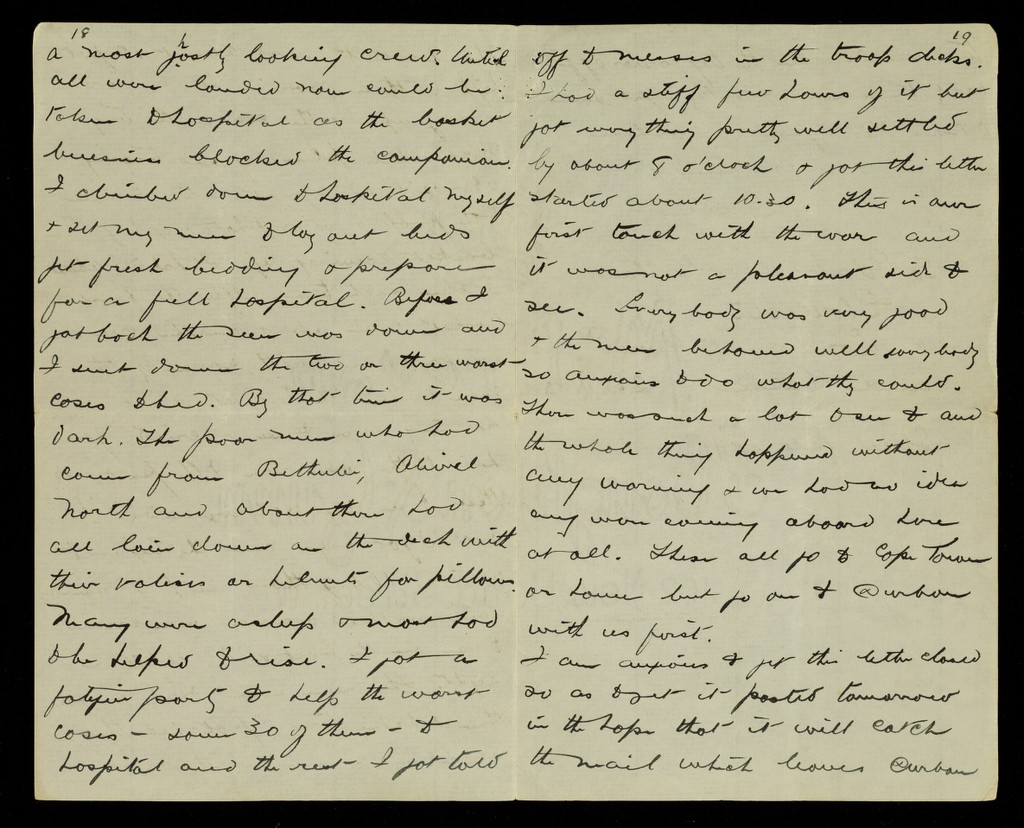 18
a most ghostly looking crew. Until
all were landed none could be
taken to hospital as the basket
business blocked the companion.
I climbed down to hospital myself
+ set my men to lay out beds
get fresh bedding & prepare
for a full hospital. Before I
got back the seer was down and
I sent down the two or three worst
cases to bed. By that time it was
dark. The poor men who had
come from Bethulie, Aliwal
North and about there had
all lain down on the deck with
their valises or helmets for pillows.
Many were asleep & most had
to be helped to rise. I got a
fatigue party to help the worst
cases – some 30 of them – to
hospital and the rest I got told
19
off to messes in the troop decks.
I had a stiff few hours of it but
got everything pretty well settled
by about 8 o'clock & got this letter
started about 10.30. This is our
first touch with the war and
it was not a pleasant side to
see. Everybody was very good
+ the men behaved well everybody
so anxious to do what they could.
There was such a lot to see to and
the whole thing happened without
any warning + we had no idea
any were coming aboard here
at all. These all go to Cape Town
or home but go on to Durban
with us first.
I am anxious to get this letter closed
so as to get it posted tomorrow
in the hope that it will catch
the mail which leaves Durban